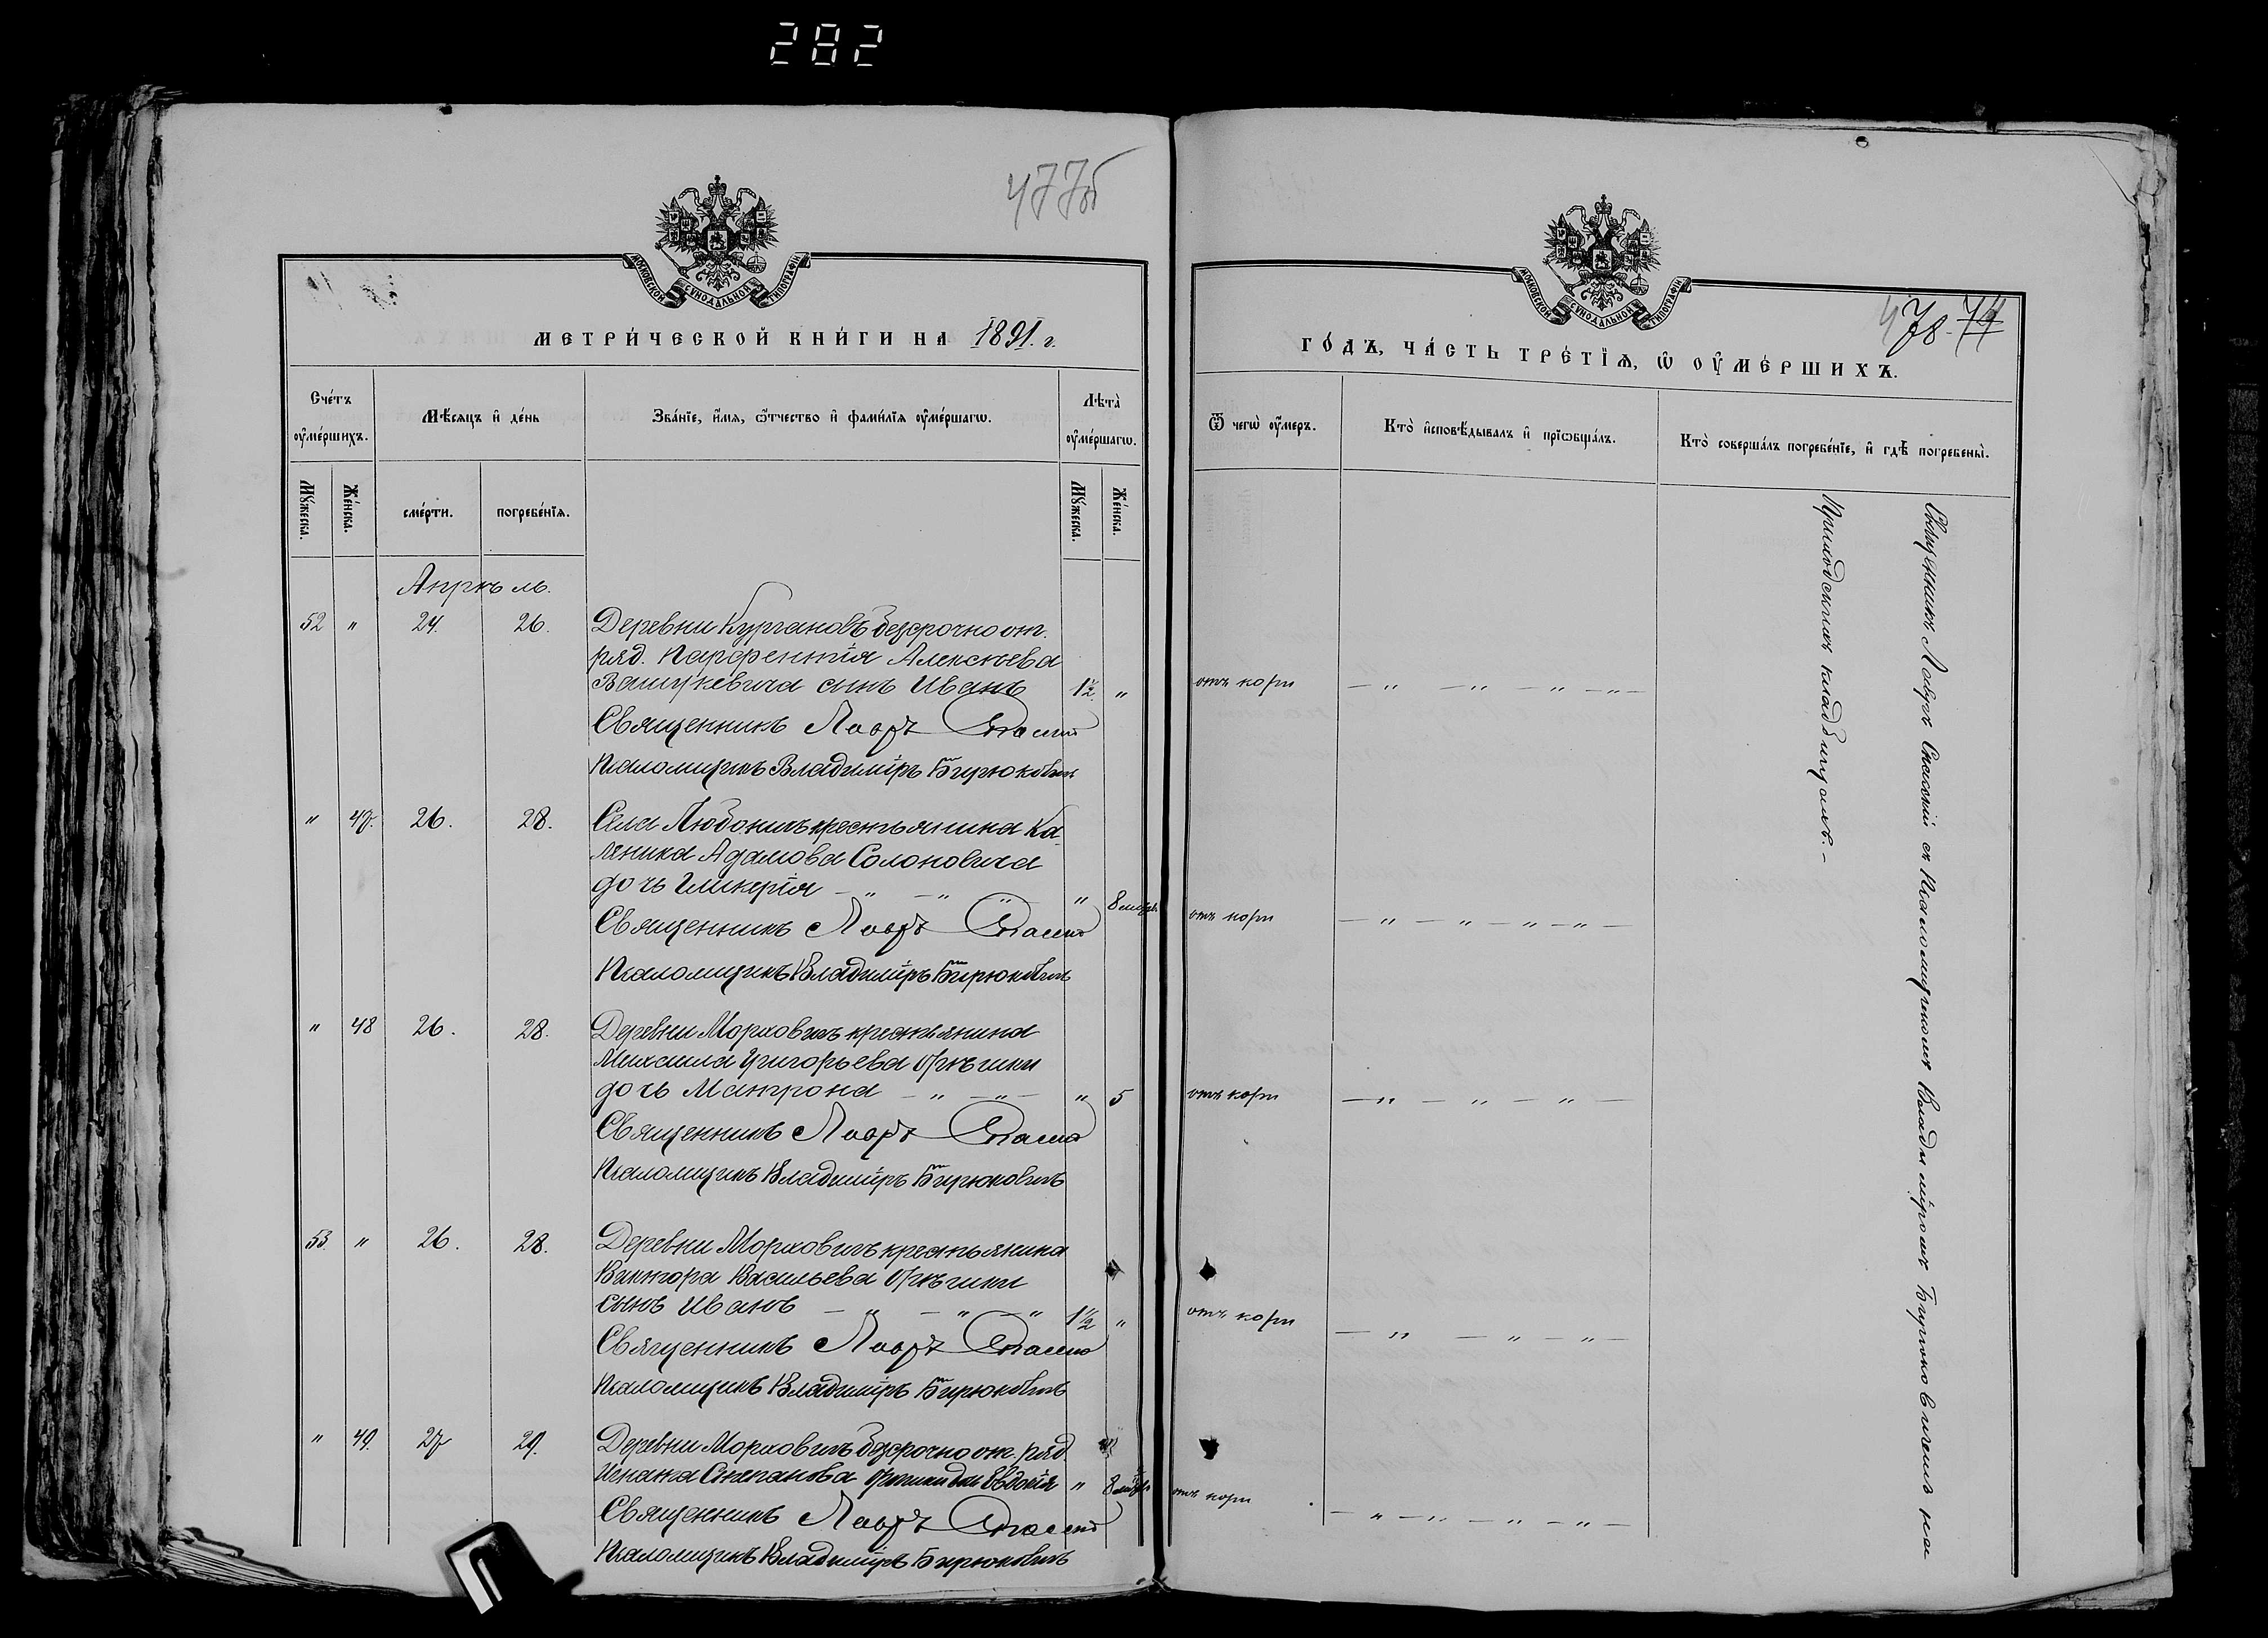 282
477об
МОСКОВСКОЙ СѴНОДАЛЬНОЙ ТИПОГРАФІИ
МЕТРИ́ЧЕСКОЙ КНИ́ГИ НА 1891. г.
Сче́тъ ᲂу҆ме́ршихъ.
Мѣ́сяцъ и҆ де́нь
Зва́нїе, и҆́мя, ѻ҆́тчество и҆ фами́лїя ᲂу҆ме́ршагѡ.
Лѣ́та ᲂу҆ме́ршагѡ.
Мꙋ́жеска.
Же́нска.
сме́рти.
погребе́нїя.
Мꙋ́жеска.
Же́нска.
Апрѣль.
52 " 24. 26. Деревни Кургановъ безсрочно от.
ряд. Парфентія Алексѣева
Вашкевича сынъ Иванъ 1½ "
Священникъ Лавръ Спасскій
Псаломщикъ Владиміръ Бирюковичъ
" 47. 26. 28. Села Любоничъ крестьянина Ка-
леника Адамова Солоновича
дочь Гликерія — " — " " " 8 мѣсяц.
Священникъ Лавръ Спасскій
Псаломщикъ Владиміръ Бирюковичъ
" 48 26. 28. Деревни Морховичъ крестьянина
Михаила Григорьева Орѣшки
дочь Матрона — " — " — " 5
Священникъ Лавръ Спасскій
Псаломщикъ Владиміръ Бирюковичъ
53 " 26. 28. Деревни Морховичъ крестьянина
Виктора Васильева Орѣшки
сынъ Иванъ — " — " — " 1½ "
Священникъ Лавръ Спасскій
Псаломщикъ Владиміръ Бирюковичъ
" 49. 27 29. Деревни Морховичъ безсрочно от. ряд.
Игната Степанова Орѣшки дочь Евдокія " 8 мѣсяц.
Священникъ Лавръ Спасскій
Псаломщикъ Владиміръ Бирюковичъ
478. 74
МОСКОВСКОЙ СѴНОДАЛЬНОЙ ТИПОГРАФІИ
ГО́ДЪ, ЧА́СТЬ ТРЕ́ТЇѦ, Ѡ҆ ОУ҆МЕ́РШИХЪ.
Ѿ чегѡ̀ ᲂу҆́меръ.
Кто̀ и҆сповѣ́дывалъ и҆ прїѡбща́лъ.
Кто̀ соверша́лъ погребе́нїе, и҆ гдѣ̀ погребены̀.
отъ кори — " — " — " — " —
отъ кори — " — " — " — " —
отъ кори — " — " — " —
отъ кори — " — " — " —
отъ кори — " — " — " — " —
Священникъ Лавръ Спасскій съ Псаломщикомъ Владиміромъ Бирюковичемъ на
Приходскихъ кладбищахъ. —